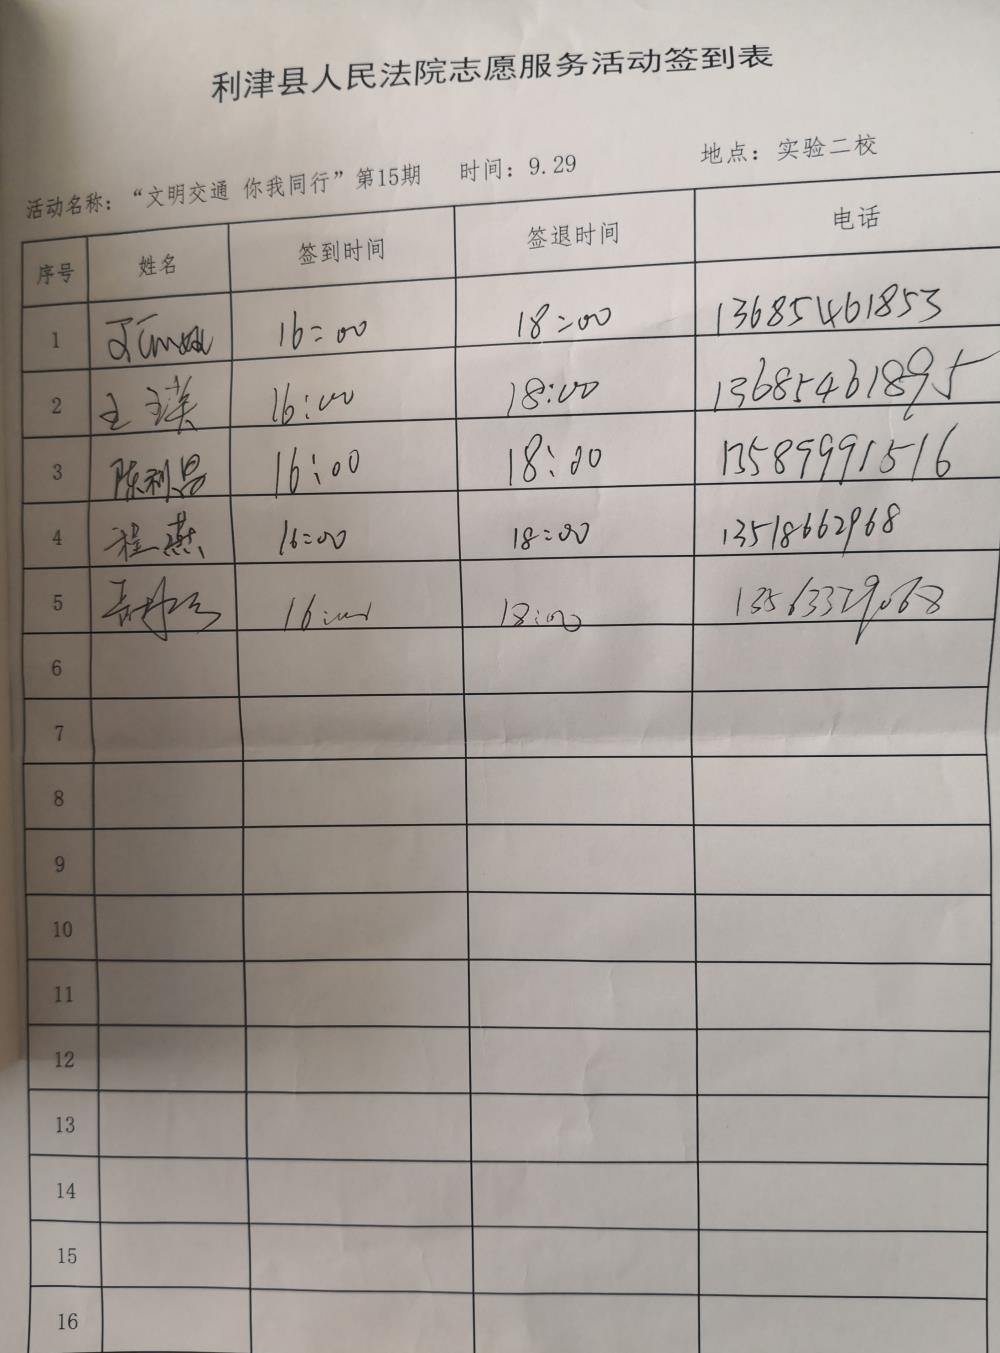 利津县人民法院志愿服务活动签到表
活动名称：“文明交通 你我同行”第15期 时间：9.29 地点：实验二校
序号 姓名 签到时间 签退时间 电话
1 16:00 18:00 13685461853
2 王瑛 16:00 18:00 13685461895
3 陈利昌 16:00 18:00 13589991516
4 程燕 16:00 18:00 13518662968
5 16:00 18:00 13563329068
6
7
8
9
10
11
12
13
14
15
16